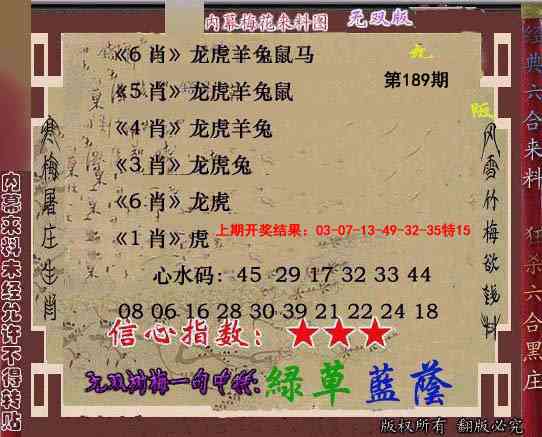 内幕梅花来料图 无双版
无
第189期
版
《6肖》龙虎羊兔鼠马
《5肖》龙虎羊兔鼠
《4肖》龙虎羊兔
《3肖》龙虎兔
《6肖》龙虎
《1肖》虎
上期开奖结果：03-07-13-49-32-35特15
心水码：45 29 17 32 33 44
08 06 16 28 30 39 21 22 24 18
信心指数：★★★
绿草蓝荫
寒梅屠庄生肖
风雪竹梅欲
内幕来料未经允许不得转贴
经典六合来料
狂杀六合黑庄
版权所有 翻版必究